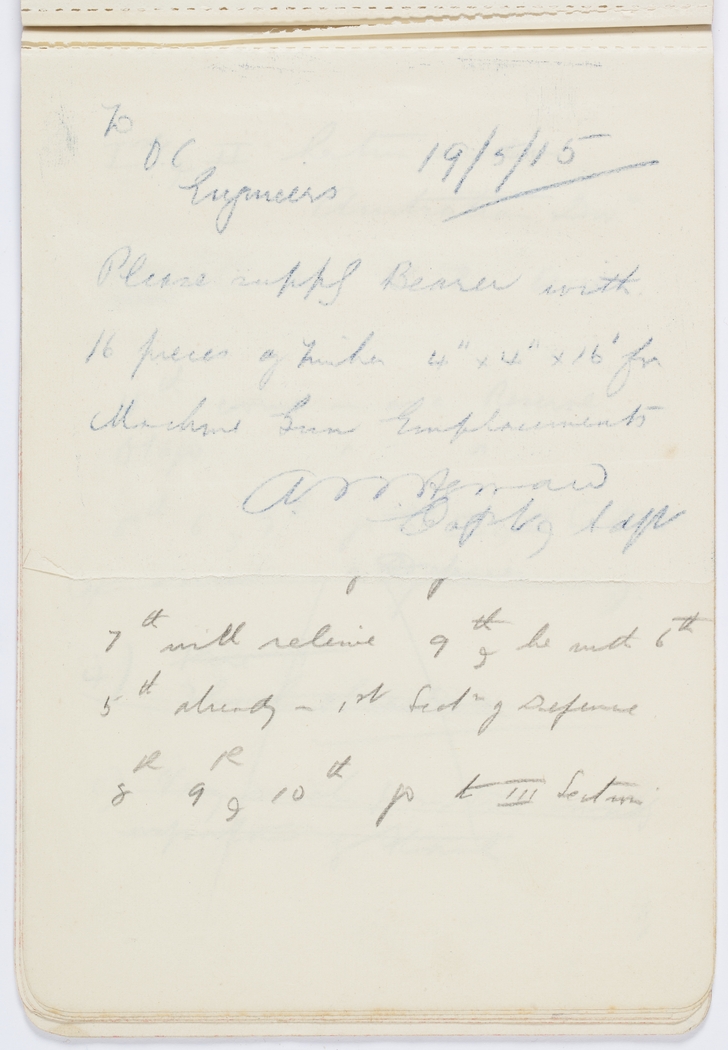 To
O C
Engineers
19/5/15
Please supply Bearer with
16 pieces of timber 4" x 4" x 16' for
Machine Gun Emplacements
Capt &
7th will relieve 9th & be with 6th
5th already in 1st Sectn of Defence
8th 9th & 10th go to III Section